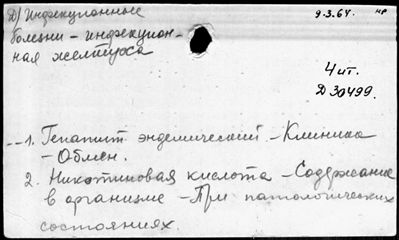 Д/ Инфекционные
болезни - инфекцион-
ная желтуха
9.3.64.
нр
Чит.
Д 30499.
1. Гепатит эндемический - Клиника
- Обмен.
2. Никотиновая кислота - Содержание
в организме - При патологических
состояниях.